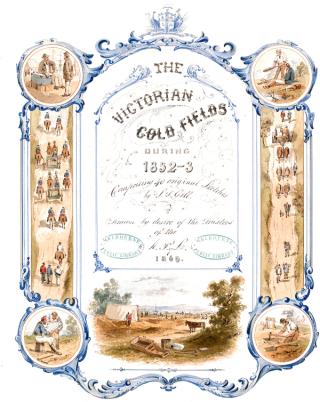 THE
VICTORIAN
GOLD FIELDS
DURING
1852-3
Comprising 40 original Sketches
by S.T. Gill.
Drawn by desire of the Trustees
of the
M. P. L.
1869.
MELBOURNE
PUBLIC LIBRARY
MELBOURNE
PUBLIC LIBRARY